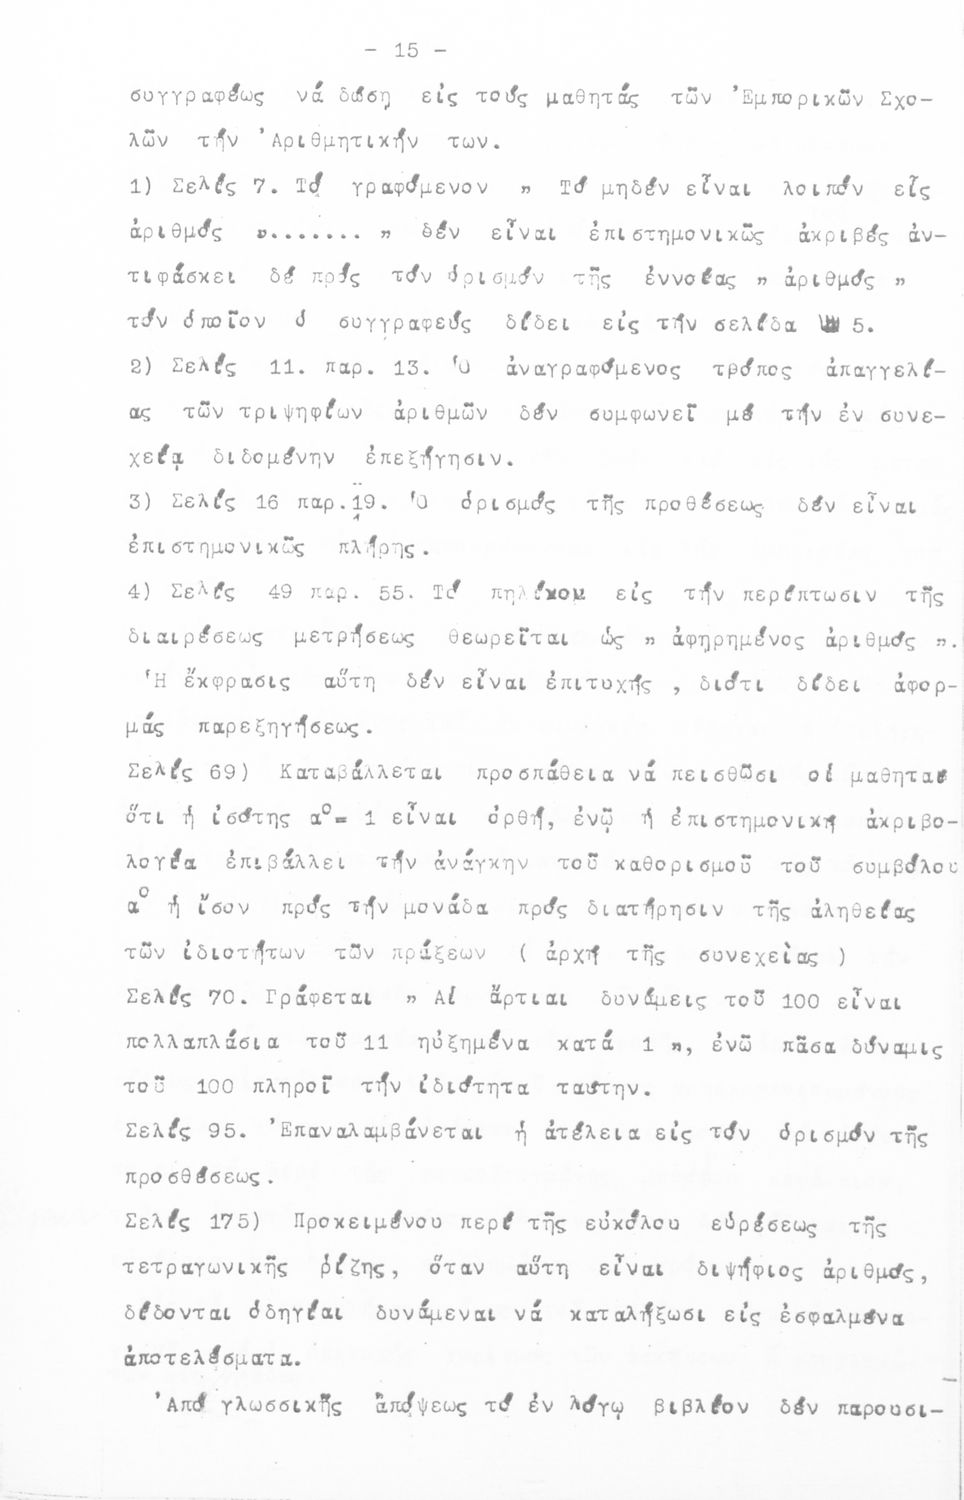 - 15 -
συγγραφέως νά δώσῃ εἰς τούς μαθητάς τῶν Ἐμπορικῶν Σχο-
λῶν τήν Ἀριθμητικήν των.
1) Σελίς 7. Τό γραφόμενον " Τό μηδέν εἶναι λοιπόν εἷς
ἀριθμός "....... " δέν εἶναι ἐπιστημονικῶς ἀκριβές ἀν-
τιφάσκει δέ πρός τόν ὁρισμόν τῆς ἐννοίας " ἀριθμός "
τόν ὁποῖον ὁ συγγραφεύς δίδει εἰς τήν σελίδα 5.
2) Σελίς 11. παρ. 13. Ὁ ἀναγραφόμενος τρόπος ἀπαγγελί-
ας τῶν τριψηφίων ἀριθμῶν δέν συμφωνεῖ μέ τήν ἐν συνε-
χείᾳ διδομένην ἐπεξήγησιν.
3) Σελίς 16 παρ.19. Ὁ ὁρισμός τῆς προθέσεως δέν εἶναι
ἐπιστημονικῶς πλήρης.
4) Σελίς 49 παρ. 55. Τό πηλίκον εἰς τήν περίπτωσιν τῆς
διαιρέσεως μετρήσεως θεωρεῖται ὡς " ἀφῃρημένος ἀριθμός ".
Ἡ ἔκφρασις αὕτη δέν εἶναι ἐπιτυχής , διότι δίδει ἀφορ-
μάς παρεξηγήσεως.
Σελίς 69) Καταβάλλεται προσπάθεια νά πεισθῶσι οἱ μαθηταί
ὅτι ἡ ἰσότης α⁰= 1 εἶναι ὀρθή, ἐνῷ ἡ ἐπιστημονική ἀκριβο-
λογία ἐπιβάλλει τήν ἀνάγκην τοῦ καθορισμοῦ τοῦ συμβόλου
α⁰ ἡ ἴσον πρός τήν μονάδα πρός διατήρησιν τῆς ἀληθείας
τῶν ἰδιοτήτων τῶν πράξεων ( ἀρχή τῆς συνεχείας )
Σελίς 70. Γράφεται " Αἱ ἄρτιαι δυνάμεις τοῦ 100 εἶναι
πολλαπλάσια τοῦ 11 ηὐξημένα κατά 1 ", ἐνῶ πᾶσα δύναμις
τοῦ 100 πληροῖ τήν ἰδιότητα ταύτην.
Σελίς 95. Ἐπαναλαμβάνεται ἡ ἀτέλεια εἰς τόν ὁρισμόν τῆς
προσθέσεως.
Σελίς 175) Προκειμένου περί τῆς εὐκόλου εὑρέσεως τῆς
τετραγωνικῆς ῥίζης, ὅταν αὕτη εἶναι διψήφιος ἀριθμός,
δίδονται ὁδηγίαι δυνάμεναι νά καταλήξωσι εἰς ἐσφαλμένα
ἀποτελέσματα.
Ἀπό γλωσσικῆς ἀπόψεως τό ἐν λόγῳ βιβλίον δέν παρουσι-